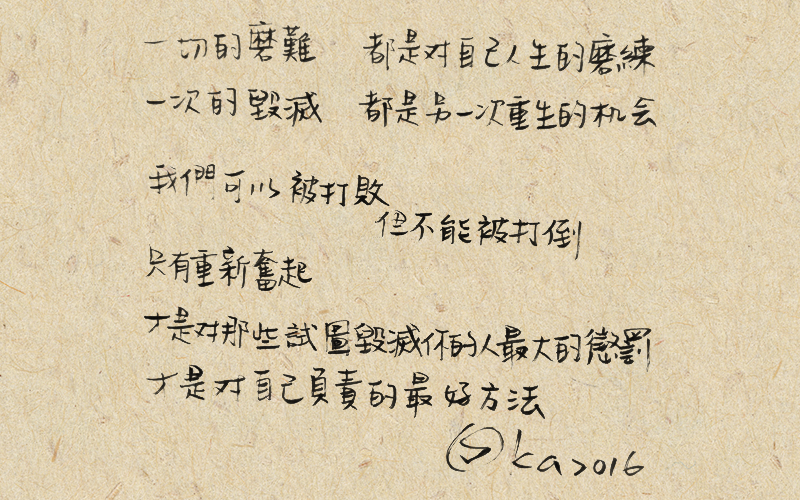 一切的磨難 都是对自己人生的磨練
一次的毀滅 都是另一次重生的机会
我們可以被打敗
但不能被打倒
只有重新奮起
才是对那些試圖毀滅你的人最大的懲罰
才是对自己負責的最好方法
ka 2016